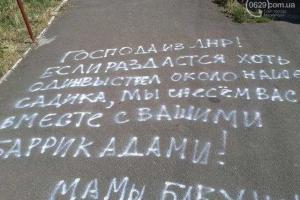 0629.com.ua
ГОСПОДА ИЗ ДНР!
ЕСЛИ РАЗДАСТСЯ ХОТЬ
ОДИН ВЫСТРЕЛ ОКОЛО НАШЕ
САДИКА, МЫ СНЕСЁМ ВАС
ВМЕСТЕ С ВАШИМИ
БАРРИКАДАМИ!
МАМЫ